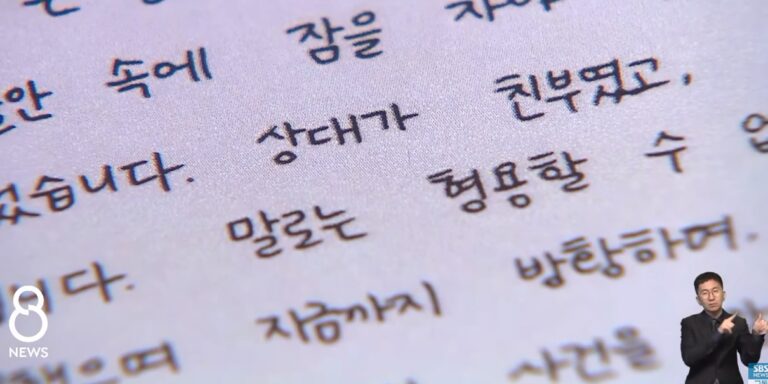 속에 잠을
었습니다. 상대가 친부였고,
말로는 형용할 수
니다. 지금까지 방황하며.
사건을
8
NEWS
SBS
NEWS